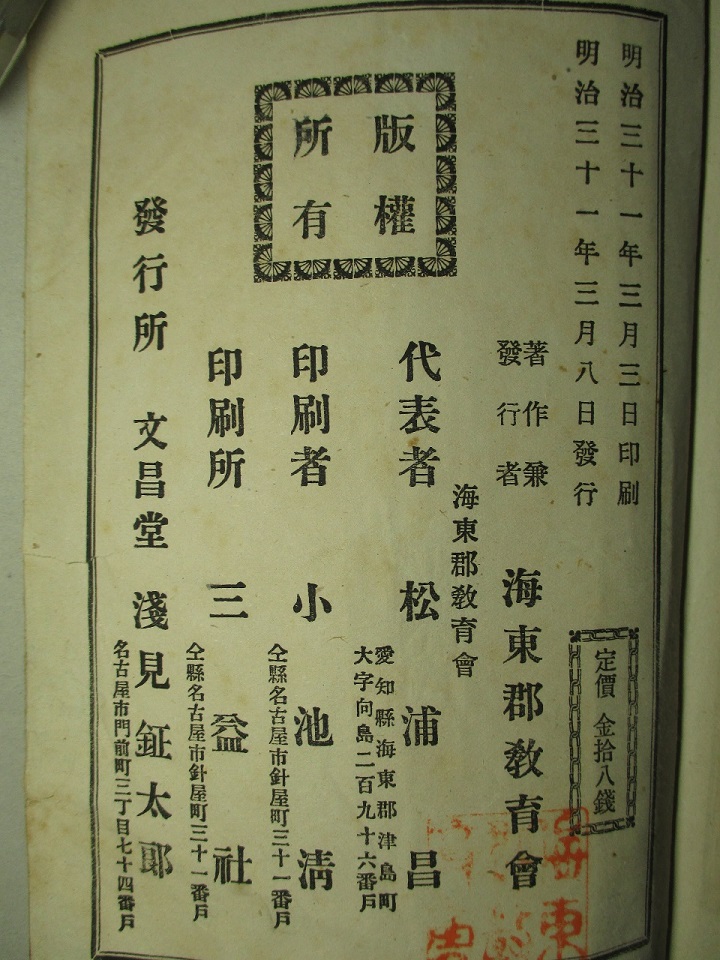 明治三十一年三月三日印刷
明治三十一年三月八日發行
定價 金拾八錢
版權
所有
著作兼
發行者
海東郡教育會
海東郡教育會
代表者 松浦昌
愛知縣海東郡津島町
大字向島二百九十六番戸
印刷者 小池淸
仝縣名古屋市針屋町三十一番戸
印刷所 三益社
仝縣名古屋市針屋町三十一番戸
發行所 文昌堂 淺見鉦太郎
名古屋市門前町三丁目七十四番戸